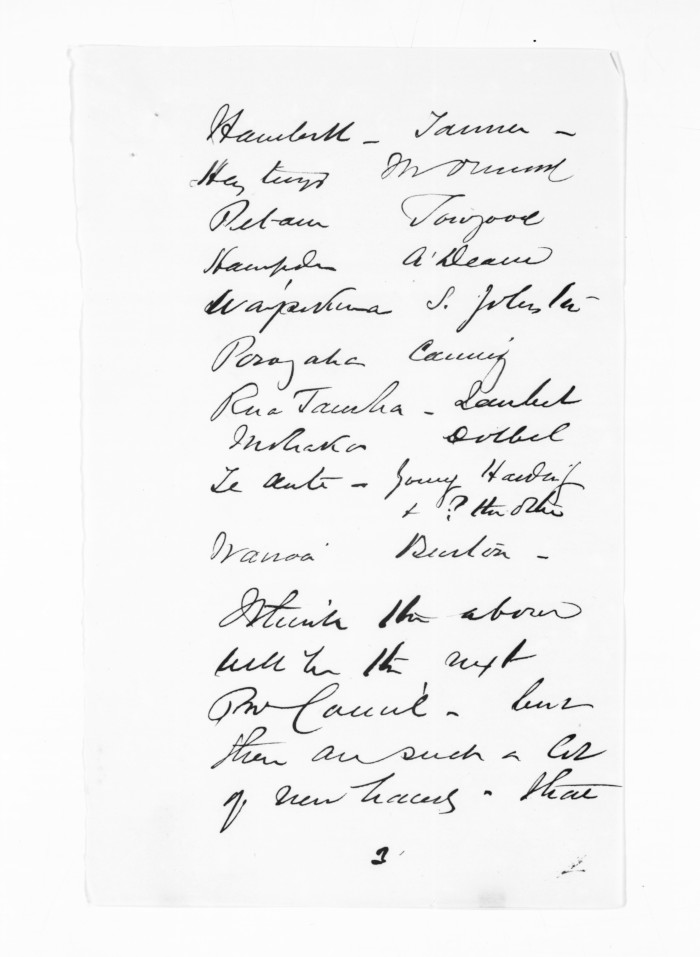 Havelock - Tanner -
Hastings McOrmond
Petane Towgood
Hampden A'Deane
Waipukurau S. Johnston
Porangahau Canning
Rua Taniwha - Lambert
Mohaka Dolbel
Te Aute - Young Harding
& ? the other
Wairoa Burton -
I think the above
will be the next
Pro Council - but
there are such a lot
of new hands - that
3